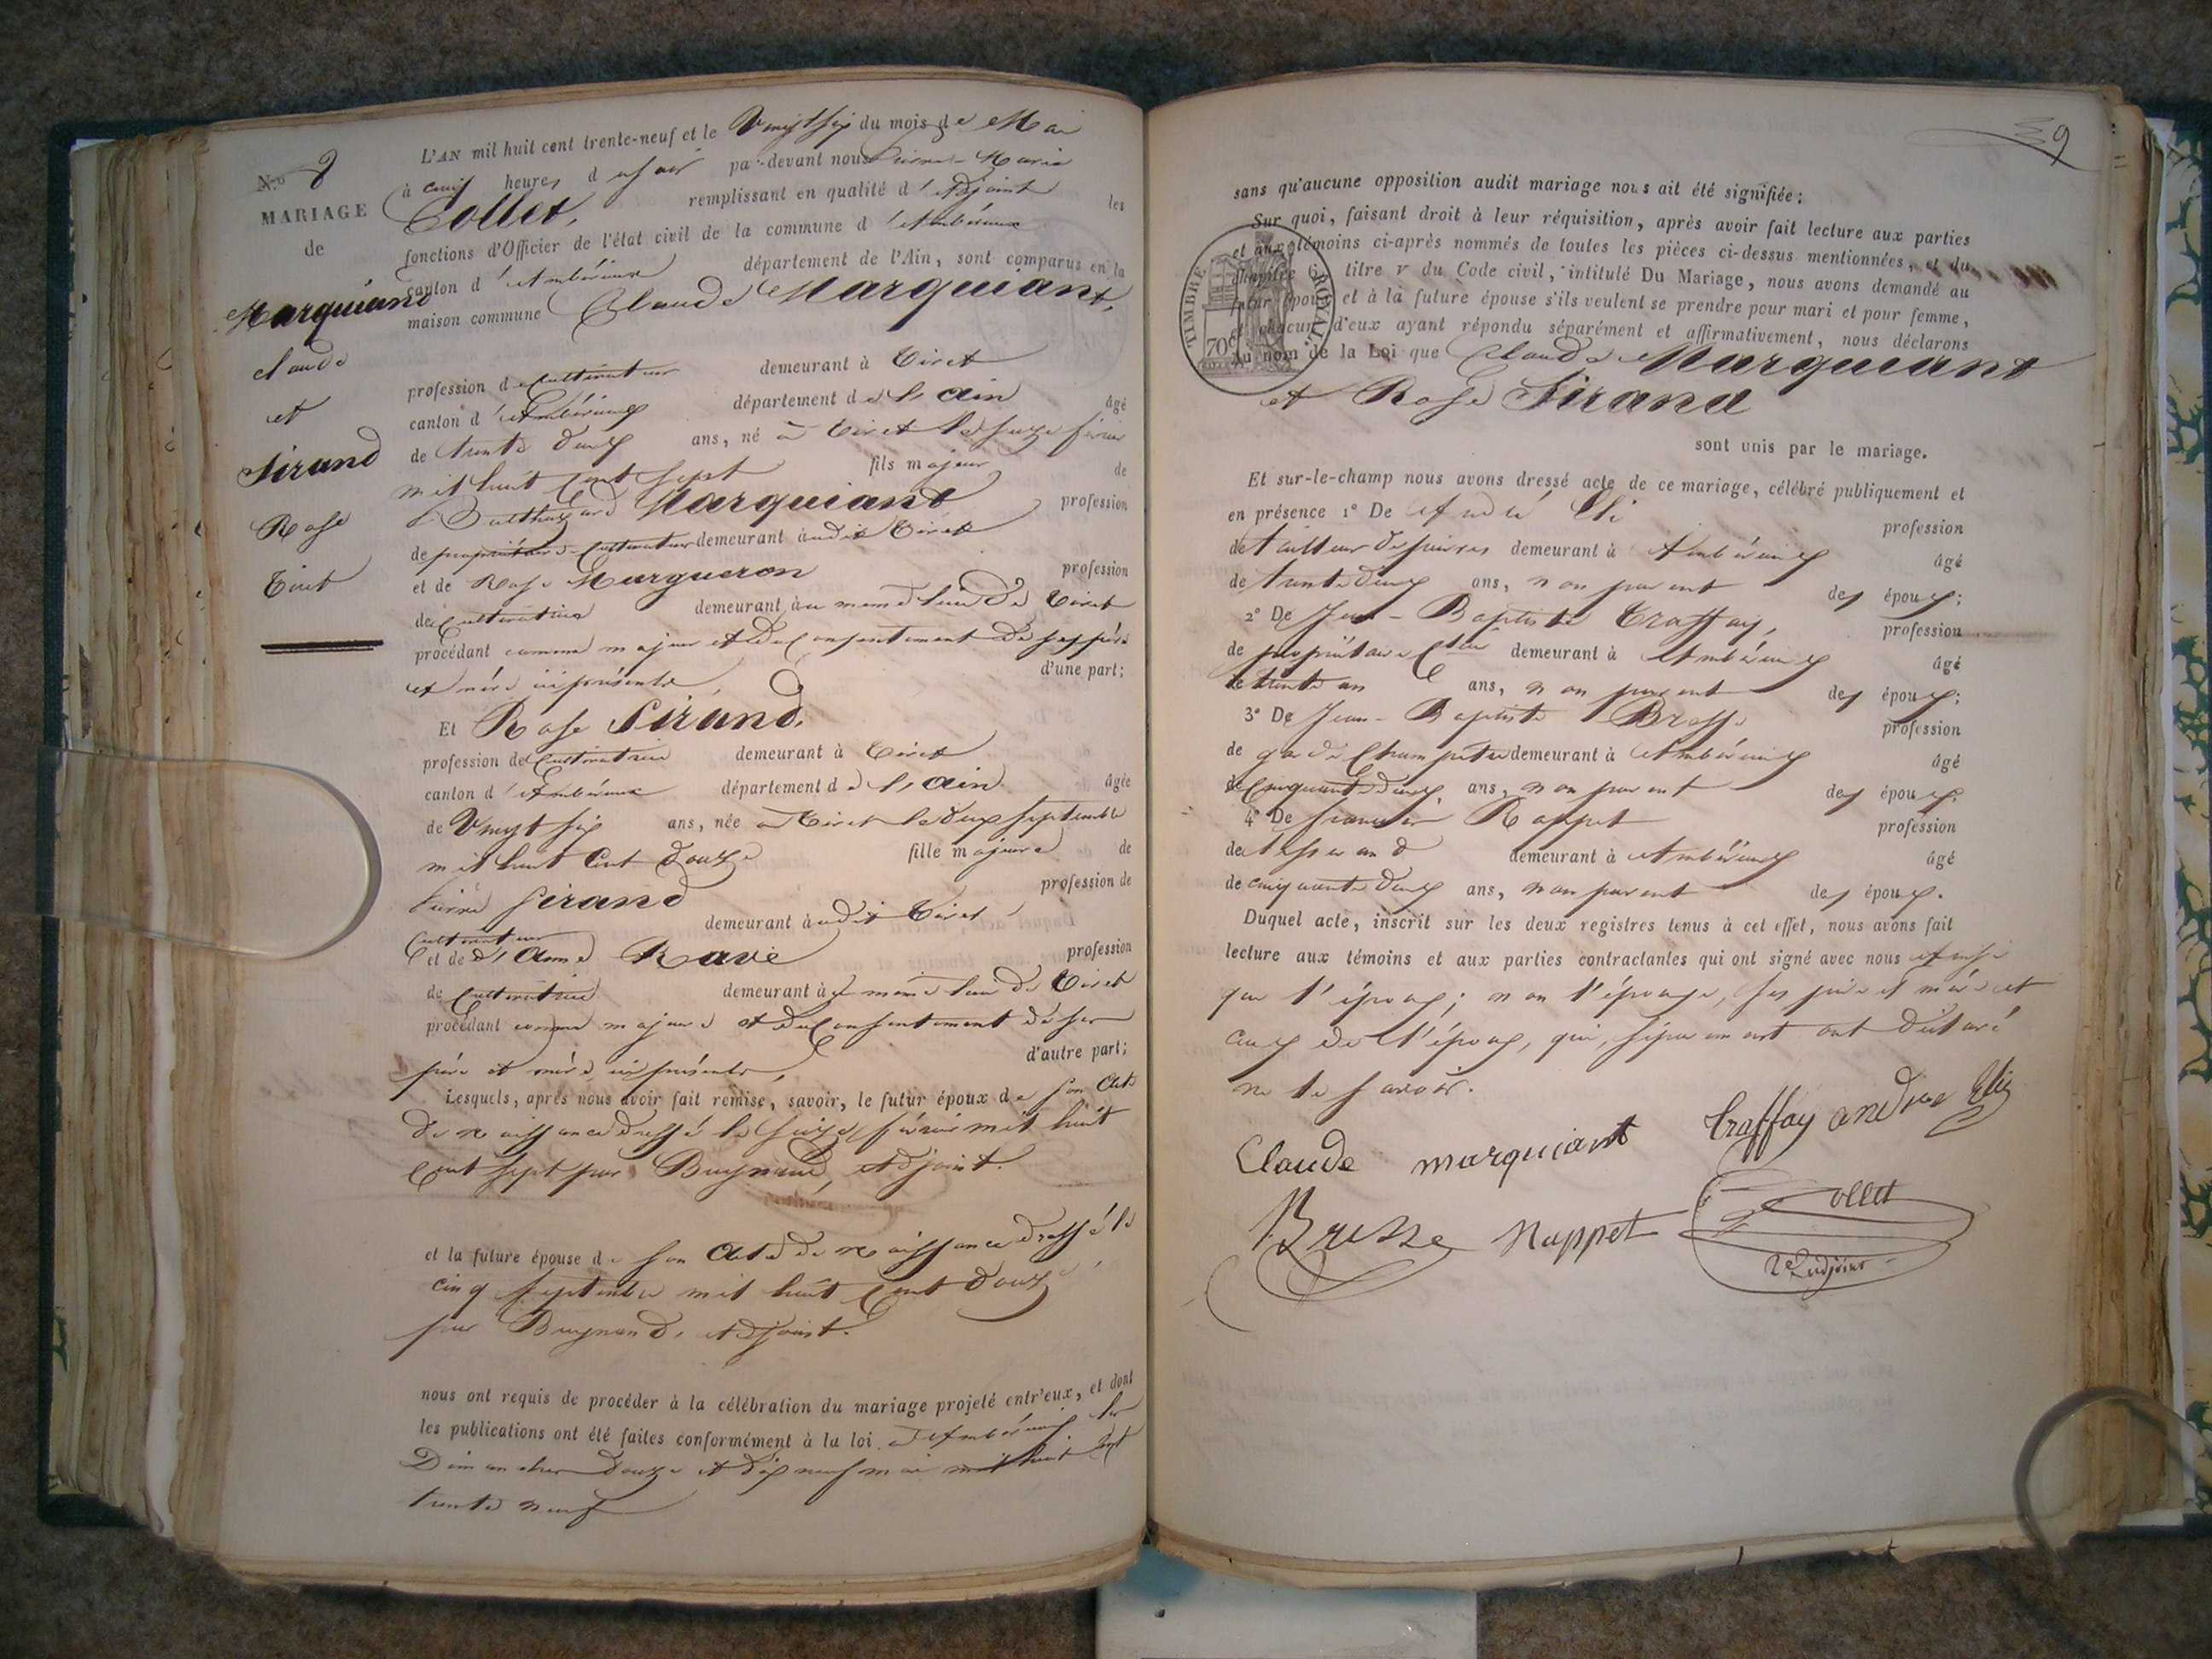 N.º 8
MARIAGE
de
Marquiant
claude
et
Sirand
Rose
Tiret
L'AN mil huit cent trente-neuf et le Vingt six du mois de Mai
à cinq heures du soir par-devant nous Pierre-Marie
Collet, remplissant en qualité d'Adjoint les
fonctions d'Officier de l'état civil de la commune d'Ambérieux
canton d'Ambérieux département de l'Ain, sont comparus en la
maison commune Claude Marquiant,
profession de Cultivateur demeurant à Tiret
canton d'Ambérieux département de l'Ain âgé
de trente deux ans, né à Tiret le seize février
mil huit Cent sept fils majeur de
Balthazard Marquiant profession
de propriétaire-Cultivateur demeurant audit Tiret
et de Rose Margueron profession
de Cultivatrice demeurant au même lieu de Tiret
procédant comme majeur et du Consentement de ses père
et mère ici présents, d'une part;
Et Rose Sirand,
profession de Cultivatrice demeurant à Tiret
canton d'Ambérieux département de l'Ain âgée
de Vingt six ans, née à Tiret le septembre
mil huit Cent douze fille majeure de
Pierre Sirand profession de
Cultivateur demeurant audit Tiret
et de d'Anne Ravé profession
de Cultivatrice demeurant au même lieu de Tiret
procédant comme majeure et du Consentement de ses
père et mère, ici présents, d'autre part;
Lesquels, après nous avoir fait remise, savoir, le futur époux de son Acte
de naissance dressé le seize février mil huit
Cent sept par Buynand, Adjoint.
et la future épouse de son Acte de naissance dressé le
cinq septembre mil huit Cent douze,
par Buynand, Adjoint.
nous ont requis de procéder à la célébration du mariage projeté entr'eux, et dont
les publications ont été faites conformément à la loi à Ambérieux les
Dimanches douze et dix neuf mai mil huit Cent
trente neuf
39
sans qu'aucune opposition audit mariage nous ait été signifiée;
Sur quoi, faisant droit à leur réquisition, après avoir fait lecture aux parties
et aux témoins ci-après nommés de toutes les pièces ci-dessus mentionnées, et du
chapitre 6, titre v du Code civil, intitulé Du Mariage, nous avons demandé au
futur époux et à la future épouse s'ils veulent se prendre pour mari et pour femme,
et chacun d'eux ayant répondu séparément et affirmativement, nous déclarons
Au nom de la Loi que Claude Marquiant
et Rose Sirand
TIMBRE ROYAL
70c
sont unis par le mariage.
Et sur-le-champ nous avons dressé acte de ce mariage, célébré publiquement et
en présence 1º De André Eli profession
de tailleur de pierres demeurant à Ambérieux âgé
de trente deux ans, non parent des époux;
2º De Jean-Baptiste Traffay, profession
de propriétaire Cteur demeurant à Ambérieux âgé
de trente un ans, non parent des époux;
3º De Jean-Baptiste Brosse profession
de garde Champêtre demeurant à Ambérieux âgé
de Cinquante deux ans, non parent des époux.
4º De Rappet profession
de tisserand demeurant à Ambérieux âgé
de cinquante deux ans, non parent des époux.
Duquel acte, inscrit sur les deux registres tenus à cet effet, nous avons fait
lecture aux témoins et aux parties contractantes qui ont signé avec nous Ainsi
que l'époux; non l'épouse, ses père et mère et
ceux de l'époux, qui, séparément ont déclaré
ne le savoir.
Claude marquiant traffay andree Elie
Brusse Nappet Collet
2e adjoint